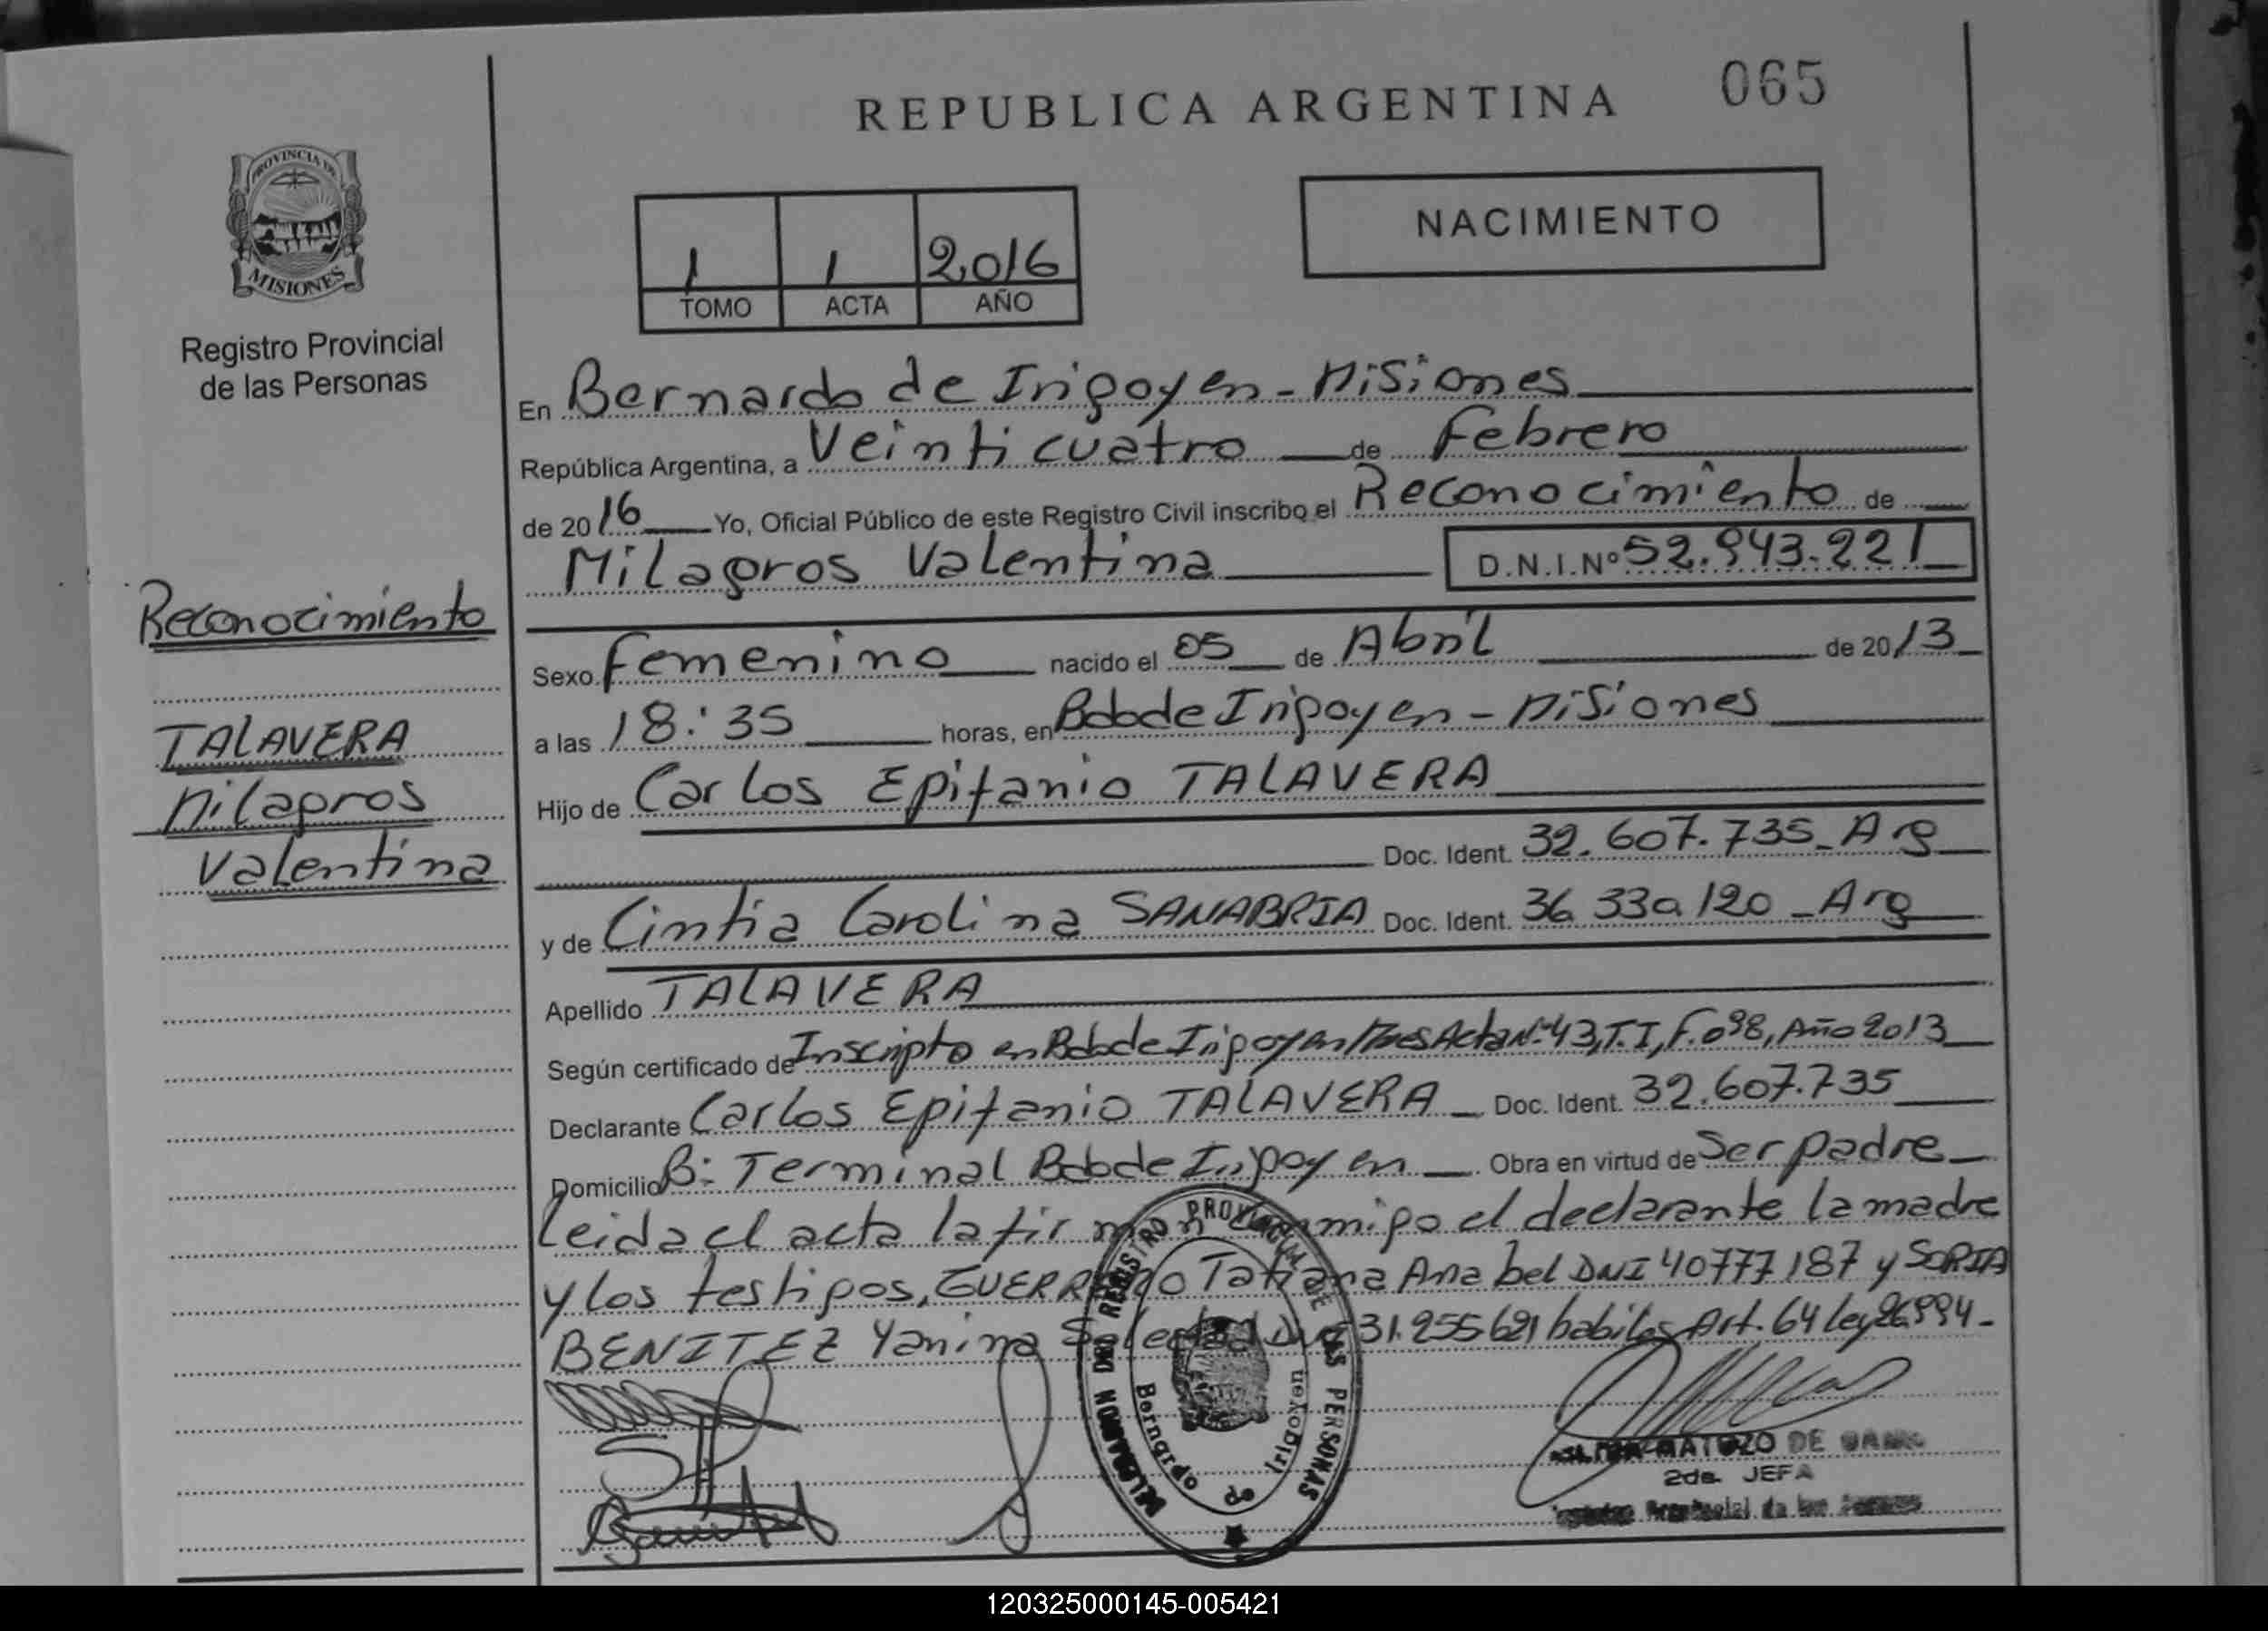 REPUBLICA ARGENTINA 065
PROVINCIA DE
MISIONES
Registro Provincial
de las Personas
1 1 2016
TOMO ACTA AÑO
NACIMIENTO
En Bernardo de Irigoyen - Misiones
República Argentina, a Veinticuatro de Febrero
de 2016 Yo, Oficial Público de este Registro Civil inscribo el Reconocimiento de
Milagros Valentina D.N.I.Nº 52.943.221
Reconocimiento
TALAVERA
Milagros
Valentina
Sexo Femenino nacido el 05 de Abril de 2013
a las 18:35 horas, en Bdo de Irigoyen - Misiones
Hijo de Carlos Epifanio TALAVERA
Doc. Ident. 32.607.735 - Arg
y de Cintia Carolina SANABRIA Doc. Ident. 36 330 120 - Arg
Apellido TALAVERA
Según certificado de Inscripto en Bdo de Irigoyen Mnes Acta Nº 43, T.I, F.098, Año 2013
Declarante Carlos Epifanio TALAVERA Doc. Ident. 32.607.735
Domicilio B: Terminal Bdo de Irigoyen Obra en virtud de Ser padre
Leida el acta la firman conmigo el declarante la madre
y los testigos, GUERRERO Tatiana Anabel DNI 40777187 y SORIA
BENITEZ Yanina Soledad DNI 31.255621 habiles Art. 64 ley 26994-
DELEGACION DEL REGISTRO PROVINCIAL DE LAS PERSONAS
Bernardo de Irigoyen
MATOZO DE
2da. JEFA
Provincial de las
120325000145-005421